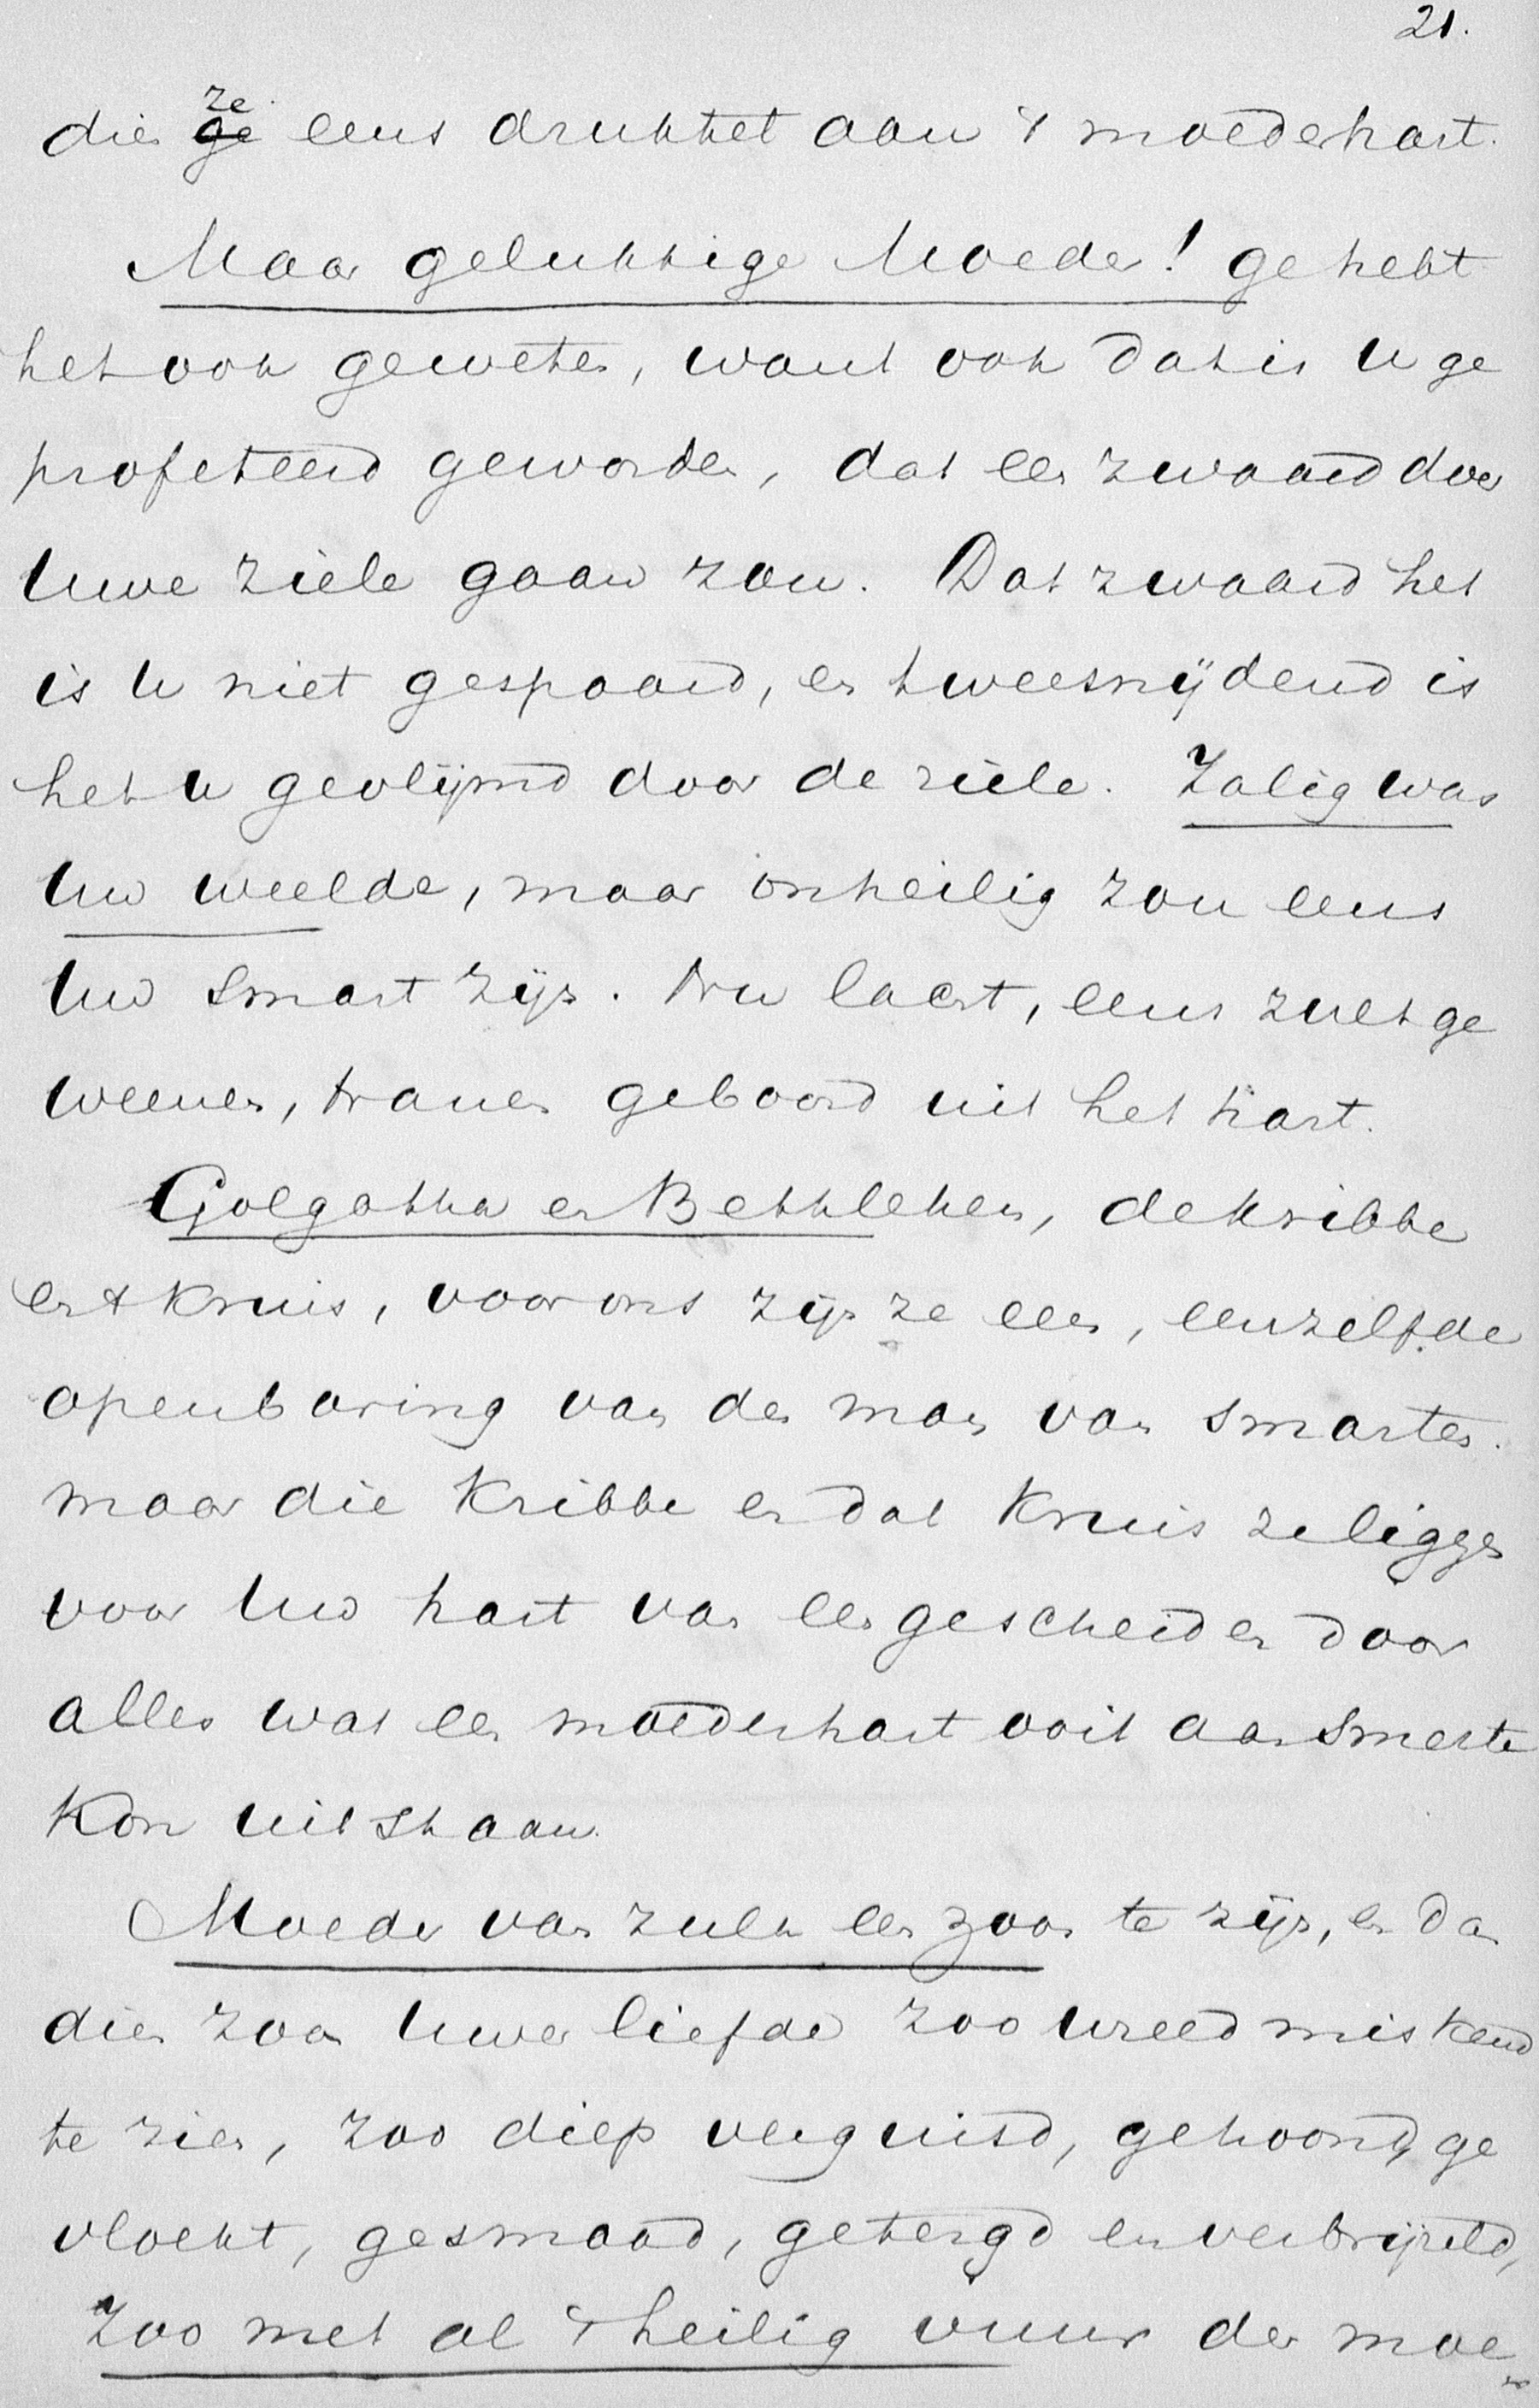 21.
dien ze
ge eens druktet aan 't moederhart.
Maar gelukkige Moeder! ge hebt
het ook geweten, want ook dat is U ge
profeteerd geworden, dat een zwaard door
Uwe ziele gaan zou. Dat zwaard het
is U niet gespaard, en tweesnijdend is
het U gevlijmd door de ziele. Zalig was
Uw weelde, maar onheilig zou eens
Uw smart zijn. Nu lacht, eens zult ge
weenen, tranen geboord uit het hart.
Golgotha en Bethlehem, de kribbe
en 't kruis, voor ons zijn ze een, eenzelfde
openbaring van den man van smarten.
maar die kribbe en dat kruis ze liggen
voor Uw hart van een gescheiden door
alles wat een moederhart ooit aan smerte
kon uitstaan.
Moeder van zulk een zoon te zijn, en dan
dien zoon Uwer liefde zoo wreed miskend
te zien, zoo diep verguisd, gehoond, ge
vloekt, gesmaad, getergd en verbrijzeld,
Zoo met al 't heilig vuur der moe